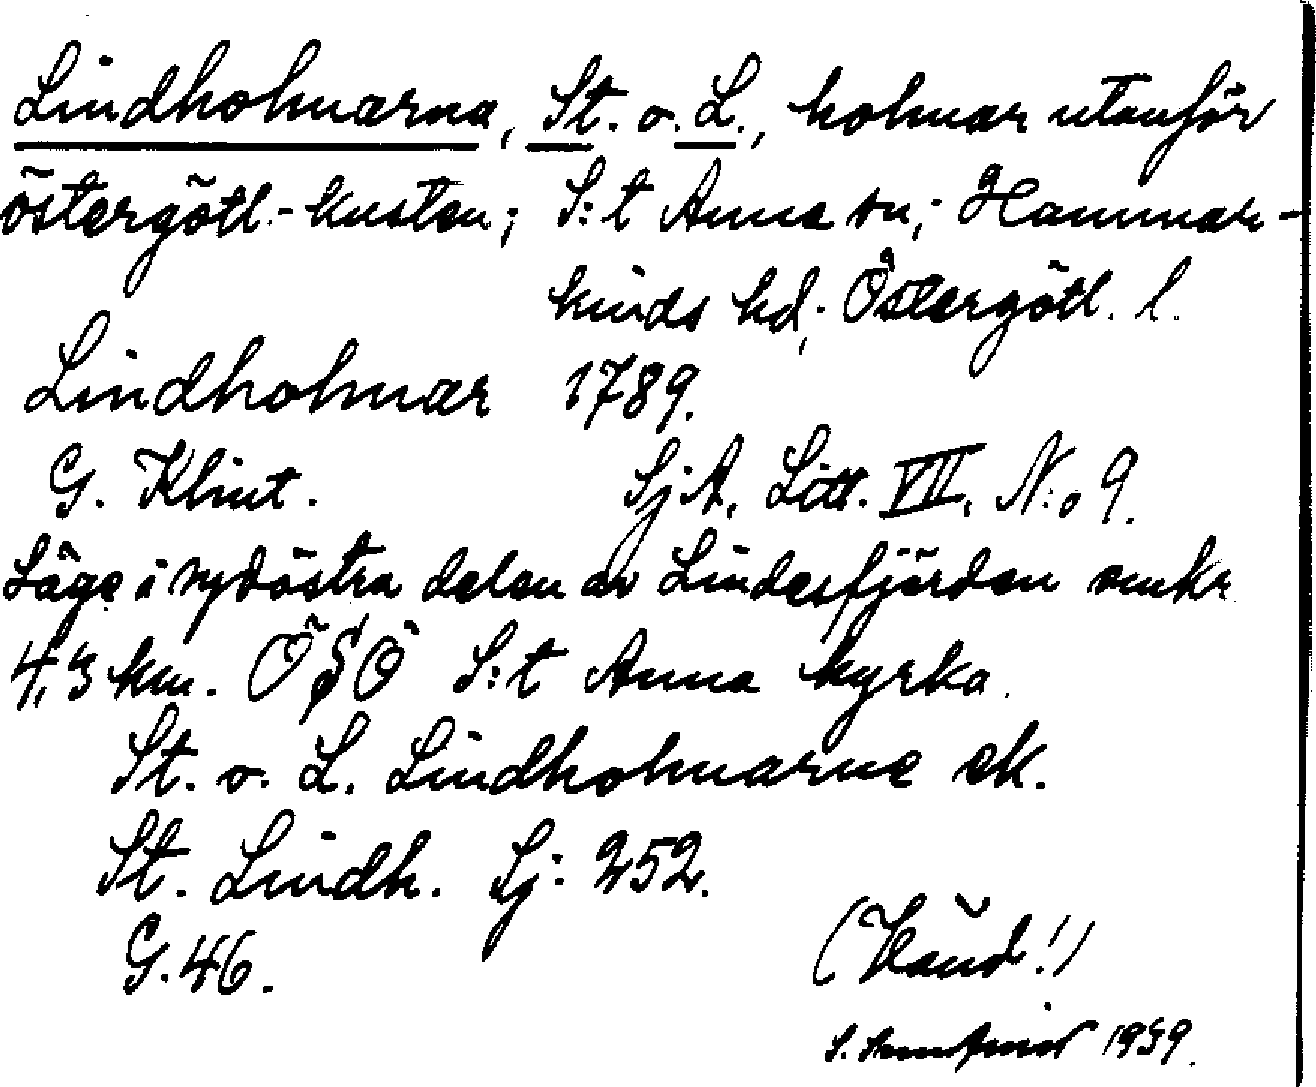 Lindholmarna, St. o. L., holmar utanför
östergötl.-kusten; S:t Anna sn; Hammar-
kinds hd; Östergötl. l.
Lindholmar 1789.
G. Klint. SjA. Litt. VII. N:o 9.
Läge i sydöstra delen av Lindersfjärden omkr
4,3 km. ÖSÖ S:t Anna kyrka.
St. o. L. Lindholmarne ek.
St. Lindh. Sj: 252.
G. 46.
(Vänd!)
S. 1939.